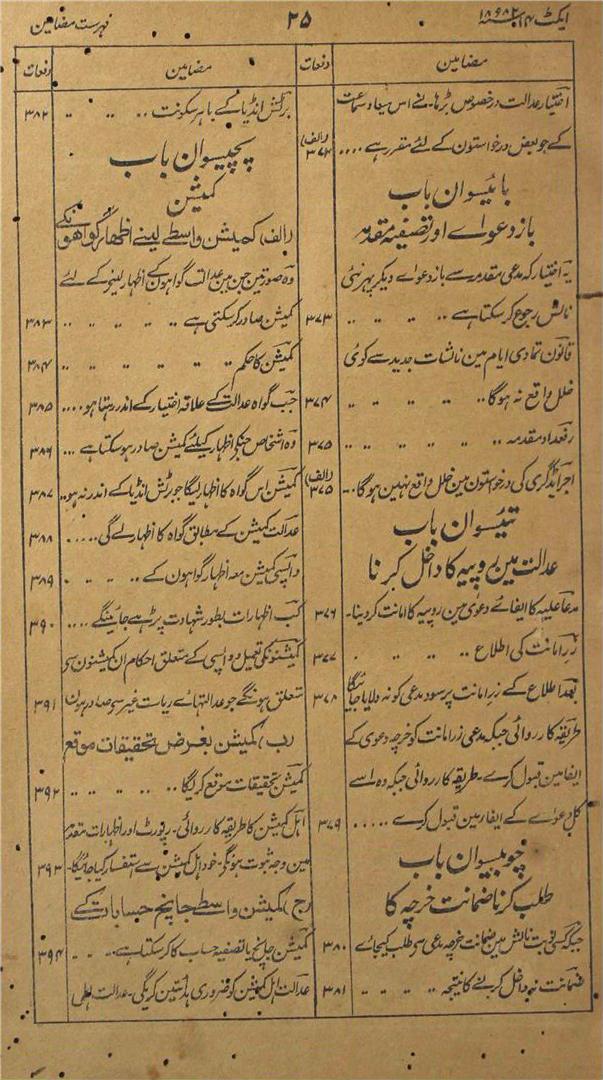 ایکٹ ۱۴ ۱۸۸۲ء
۲۵
فہرست مضامین
مضامین
دفعات
اختیار عدالت درخصوص بڑہانے اس میعاد سماعت
کے جو بعض درخواستون کے لئے مقرر ہے ....
بائیسوان باب
باز دعواے اور تصفیہ مقدمہ
یہ اختیار کہ مدعی مقدمہ سے باز دعواے دیگر پہر نئی
نالش رجوع کر سکتا ہے .. .. .. .. ۳۷۳
قانون تمادی ایام مین نالشات جدید سے کوئی
خلل واقع نہ ہوگا .. .. .. .. ۳۷۴
رفعداد مقدمہ .. .. .. .. ۳۷۵
اجراے ڈگری کی درخواستون مین خلل واقع نہین ہوگا .. (الف) ۳۷۵
تئیسوان باب
عدالت مین روپیہ کا داخل کرنا
مدعا علیہ کا ایفاے دعوی مین روپیہ کا امانت کر دینا - ۳۷۶
زر امانت کی اطلاع .. .. .. ۳۷۷
بعد اطلاع کے زر امانت پر سود مدعی کو نہ دلایا جائیگا ۳۷۸
طریقہ کارروائی جبکہ مدعی زر امانت کو خرچہ دعوی کے
ایفا مین قبول کرے - طریقہ کارروائی جبکہ وہ اسے
کل دعواے کے ایفا مین قبول کرے ..... ۳۷۹
چوبیسوان باب
طلب کرنا ضمانت خرچہ کا
جبکہ کسی نوبت نالش مین ضمانت خرچہ مدعی سے طلب کیجائے ۳۸۰
ضمانت نہ داخل کرنے کا نتیجہ .. .. .. ۳۸۱
مضامین
دفعات
برٹش انڈیا کے باہر سکونت .. .. .. ۳۸۲
پچیسوان باب
کمیشن
(الف) کمیشن واسطے لینے اظہار گواہونکے
وہ صورتین جن مین عدالت گواہون کے اظہار لینے کے لئے
کمیشن صادر کر سکتی ہے .. .. .. .. ۳۸۳
کمیشن کا حکم .. .. .. .. ۳۸۴
جب گواہ عدالت کے علاقہ اختیار کے اندر رہتا ہو .... ۳۸۵
وہ اشخاص جنکے اظہار کیلئے کمیشن صادر ہو سکتا ہے ... ۳۸۶
کمیشن اس گواہ کا اظہار لیگا جو برٹش انڈیا کے اندر نہ ہو .. ۳۸۷
عدالت کمیشن کے مطابق گواہ کا اظہار لے گی ..... ۳۸۸
واپسی کمیشن معہ اظہار گواہون کے .. .. .. ۳۸۹
کب اظہارات بطور شہادت پڑہے جائینگے .... ۳۹۰
کمیشنونکی تعمیل و واپسی کے متعلق احکام ان کمیشنون سے
متعلق ہونگے جو عدالتہاے ریاست غیر سے صادر ہون ۳۹۱
(ب) کمیشن بغرض تحقیقات موقع
کمیشن تحقیقات موقع کریگا .. .. .. .. ۳۹۲
اہل کمیشن کا طریقہ کارروائی - رپورٹ اور اظہارات مقدمہ
مین وجہ ثبوت ہونگے - خود اہل کمیشن سے استفسار کیا جائیگا - ۳۹۳
(ج) کمیشن واسطے جانچ حسابات کے
کمیشن جانچ یا تصفیہ حساب کا کر سکتا ہے .. .. ۳۹۴
عدالت اہل کمیشن کو ضروری ہدایتین کریگی - عدالت